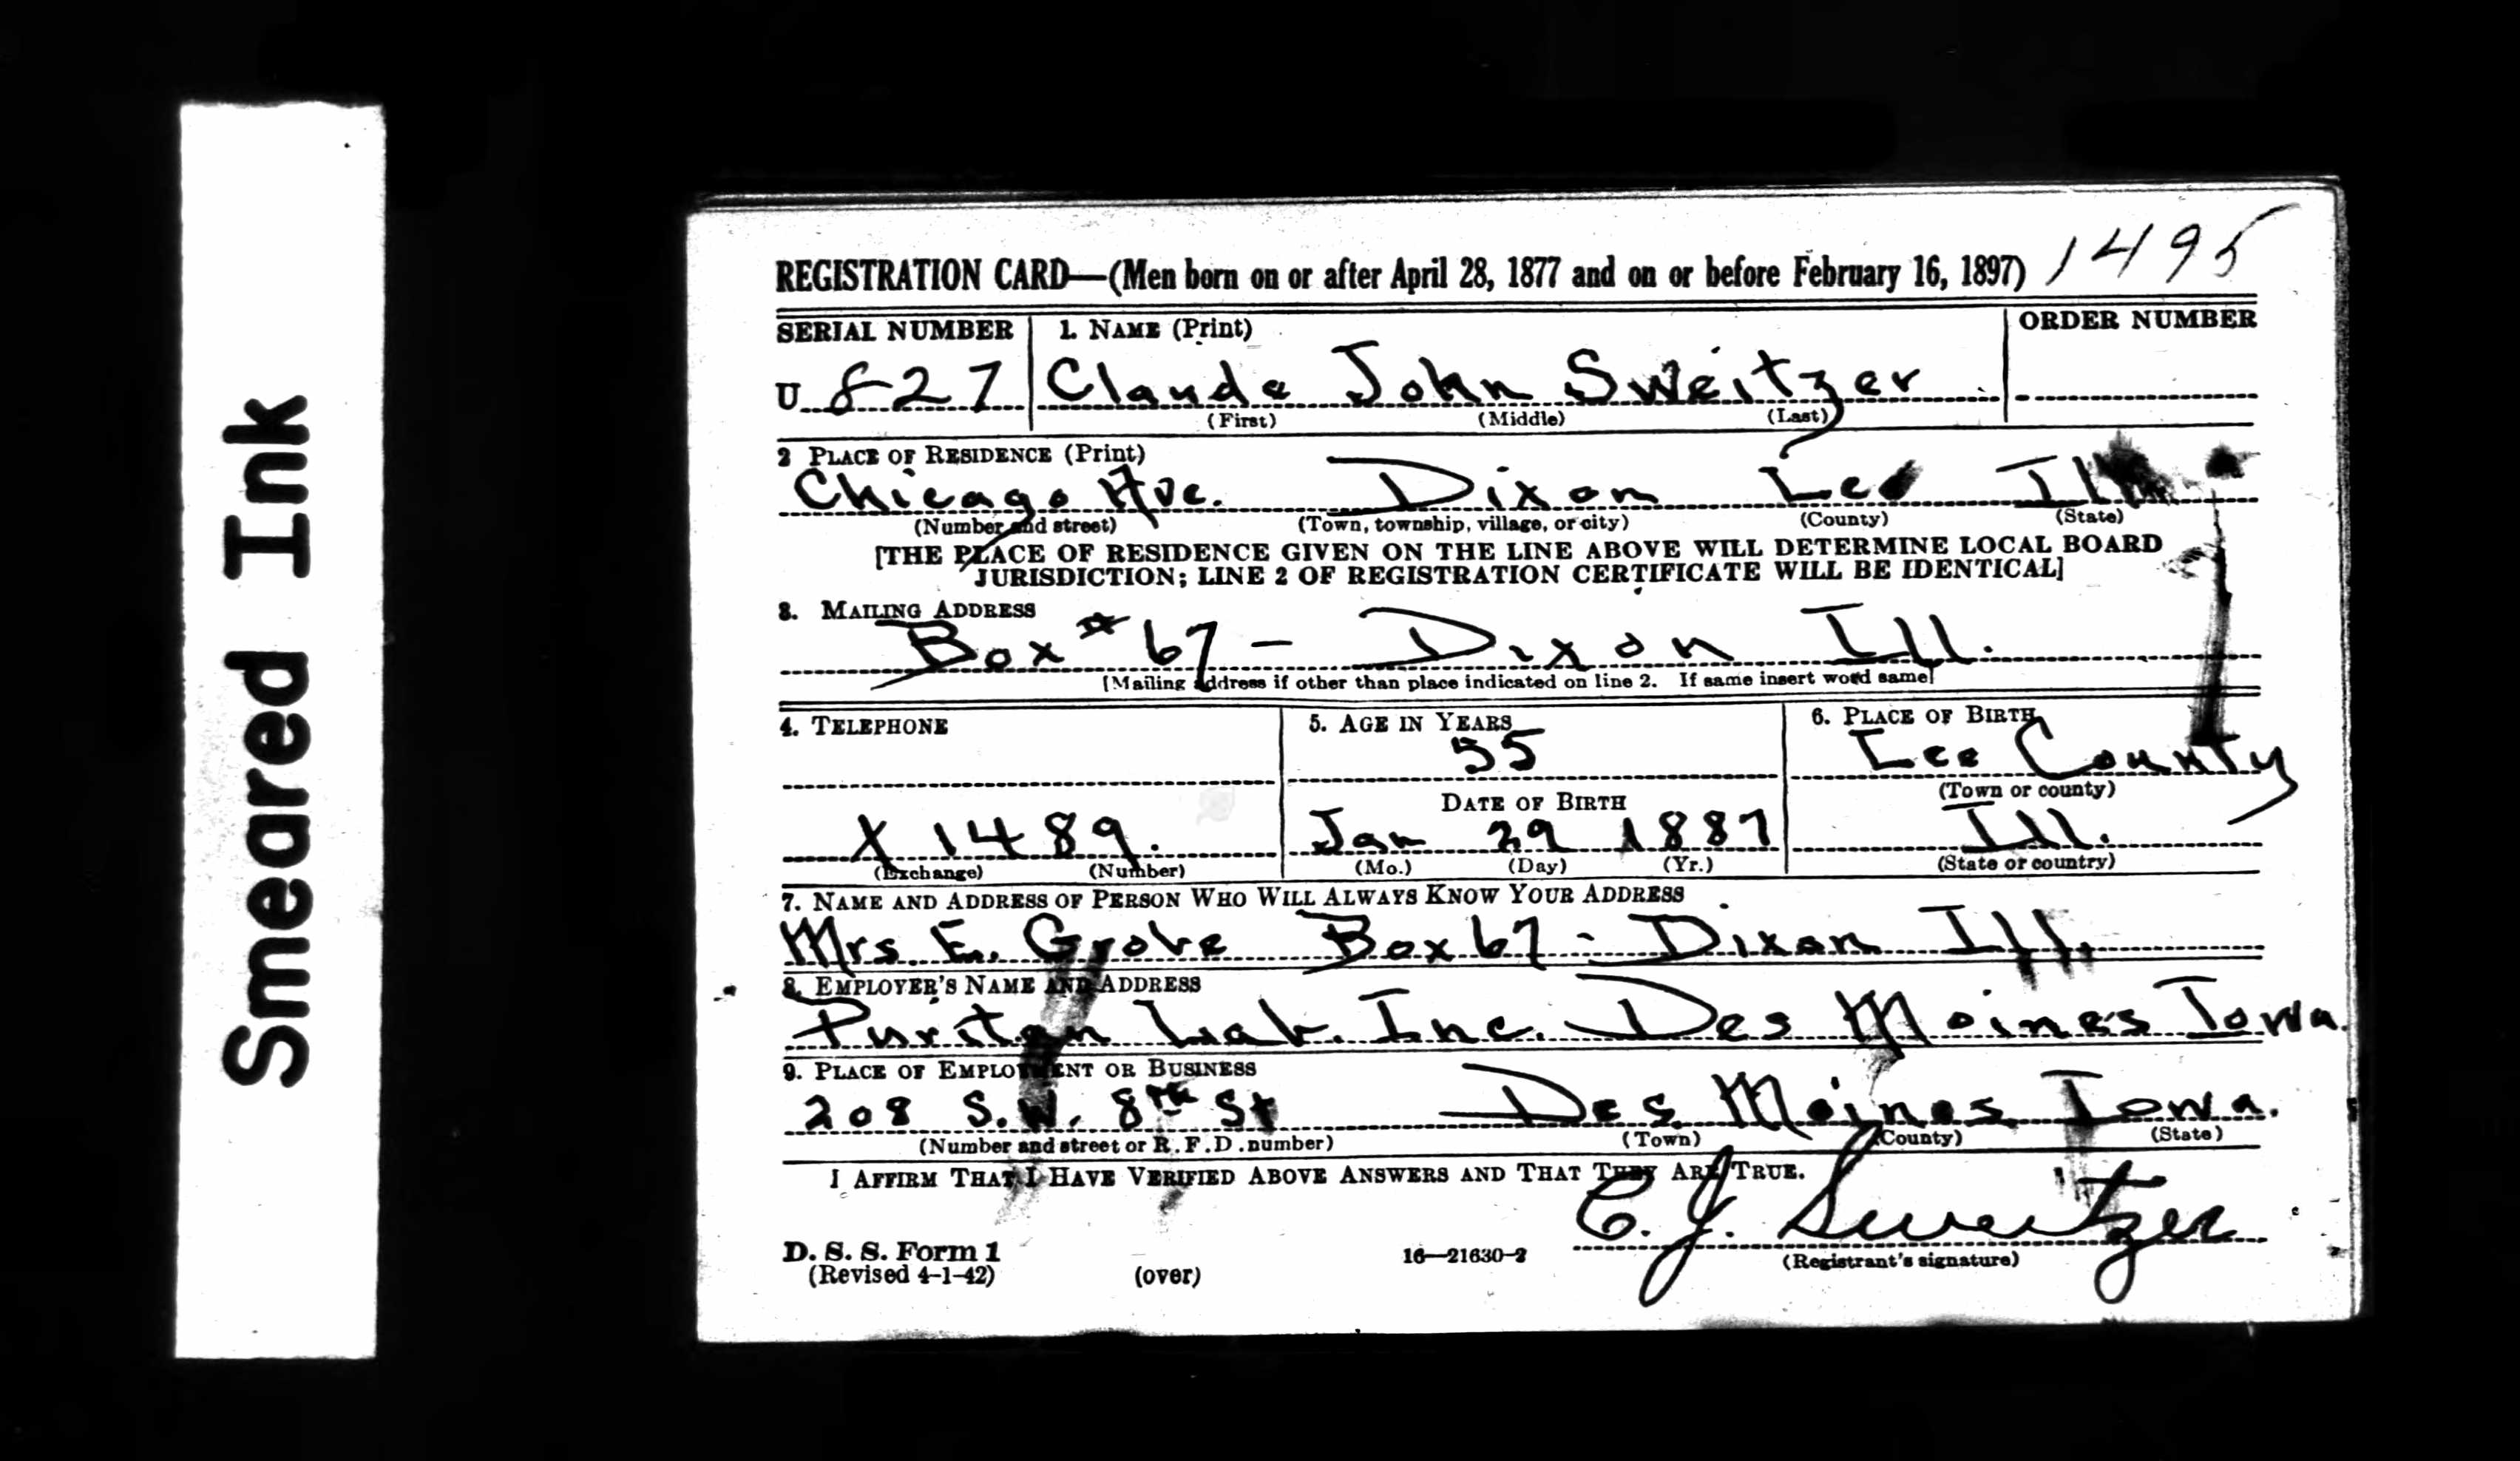 Smeared Ink
REGISTRATION CARD—(Men born on or after April 28, 1877 and on or before February 16, 1897) 1495
SERIAL NUMBER 1. NAME (Print) ORDER NUMBER
U 827 Claude John Sweitzer
(First) (Middle) (Last)
2 PLACE OF RESIDENCE (Print)
Chicago Ave. Dixon Lee Ill
(Number and street) (Town, township, village, or city) (County) (State)
[THE PLACE OF RESIDENCE GIVEN ON THE LINE ABOVE WILL DETERMINE LOCAL BOARD
JURISDICTION; LINE 2 OF REGISTRATION CERTIFICATE WILL BE IDENTICAL]
3. MAILING ADDRESS
Box #67 - Dixon Ill.
[Mailing address if other than place indicated on line 2. If same insert word same]
4. TELEPHONE 5. AGE IN YEARS 6. PLACE OF BIRTH
55 Lee County
DATE OF BIRTH (Town or county)
X 1489. Jan 29 1887 Ill.
(Exchange) (Number) (Mo.) (Day) (Yr.) (State or country)
7. NAME AND ADDRESS OF PERSON WHO WILL ALWAYS KNOW YOUR ADDRESS
Mrs. E. Grobe Box 67 - Dixon Ill.
8. EMPLOYER'S NAME AND ADDRESS
Puritan Lab. Inc. Des Moines Iowa.
9. PLACE OF EMPLOYMENT OR BUSINESS
208 S.W. 8th St Des Moines Iowa.
(Number and street or R. F. D. number) (Town) (County) (State)
I AFFIRM THAT I HAVE VERIFIED ABOVE ANSWERS AND THAT THEY ARE TRUE.
C. J. Sweitzer
D. S. S. Form 1 16—21630-2 (Registrant's signature)
(Revised 4-1-42) (over)